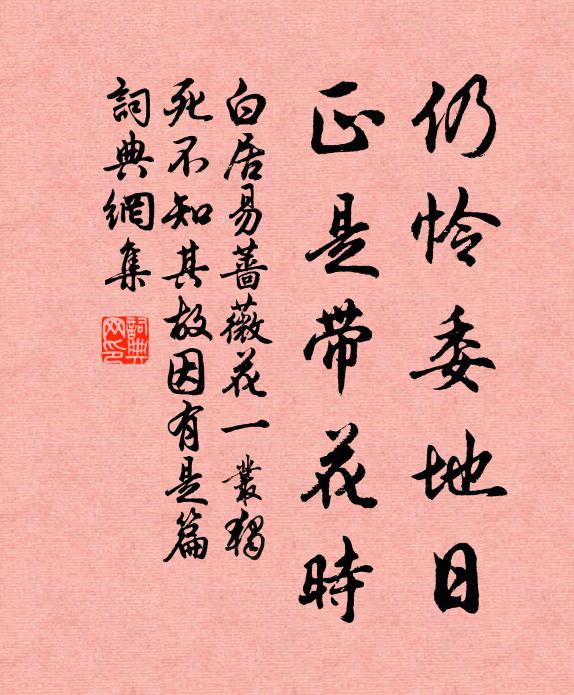 仍怜委地日
正是带花時
白居易蔷薇花一叢獨
死不知其故因有是篇
詞典網集
詞典网印